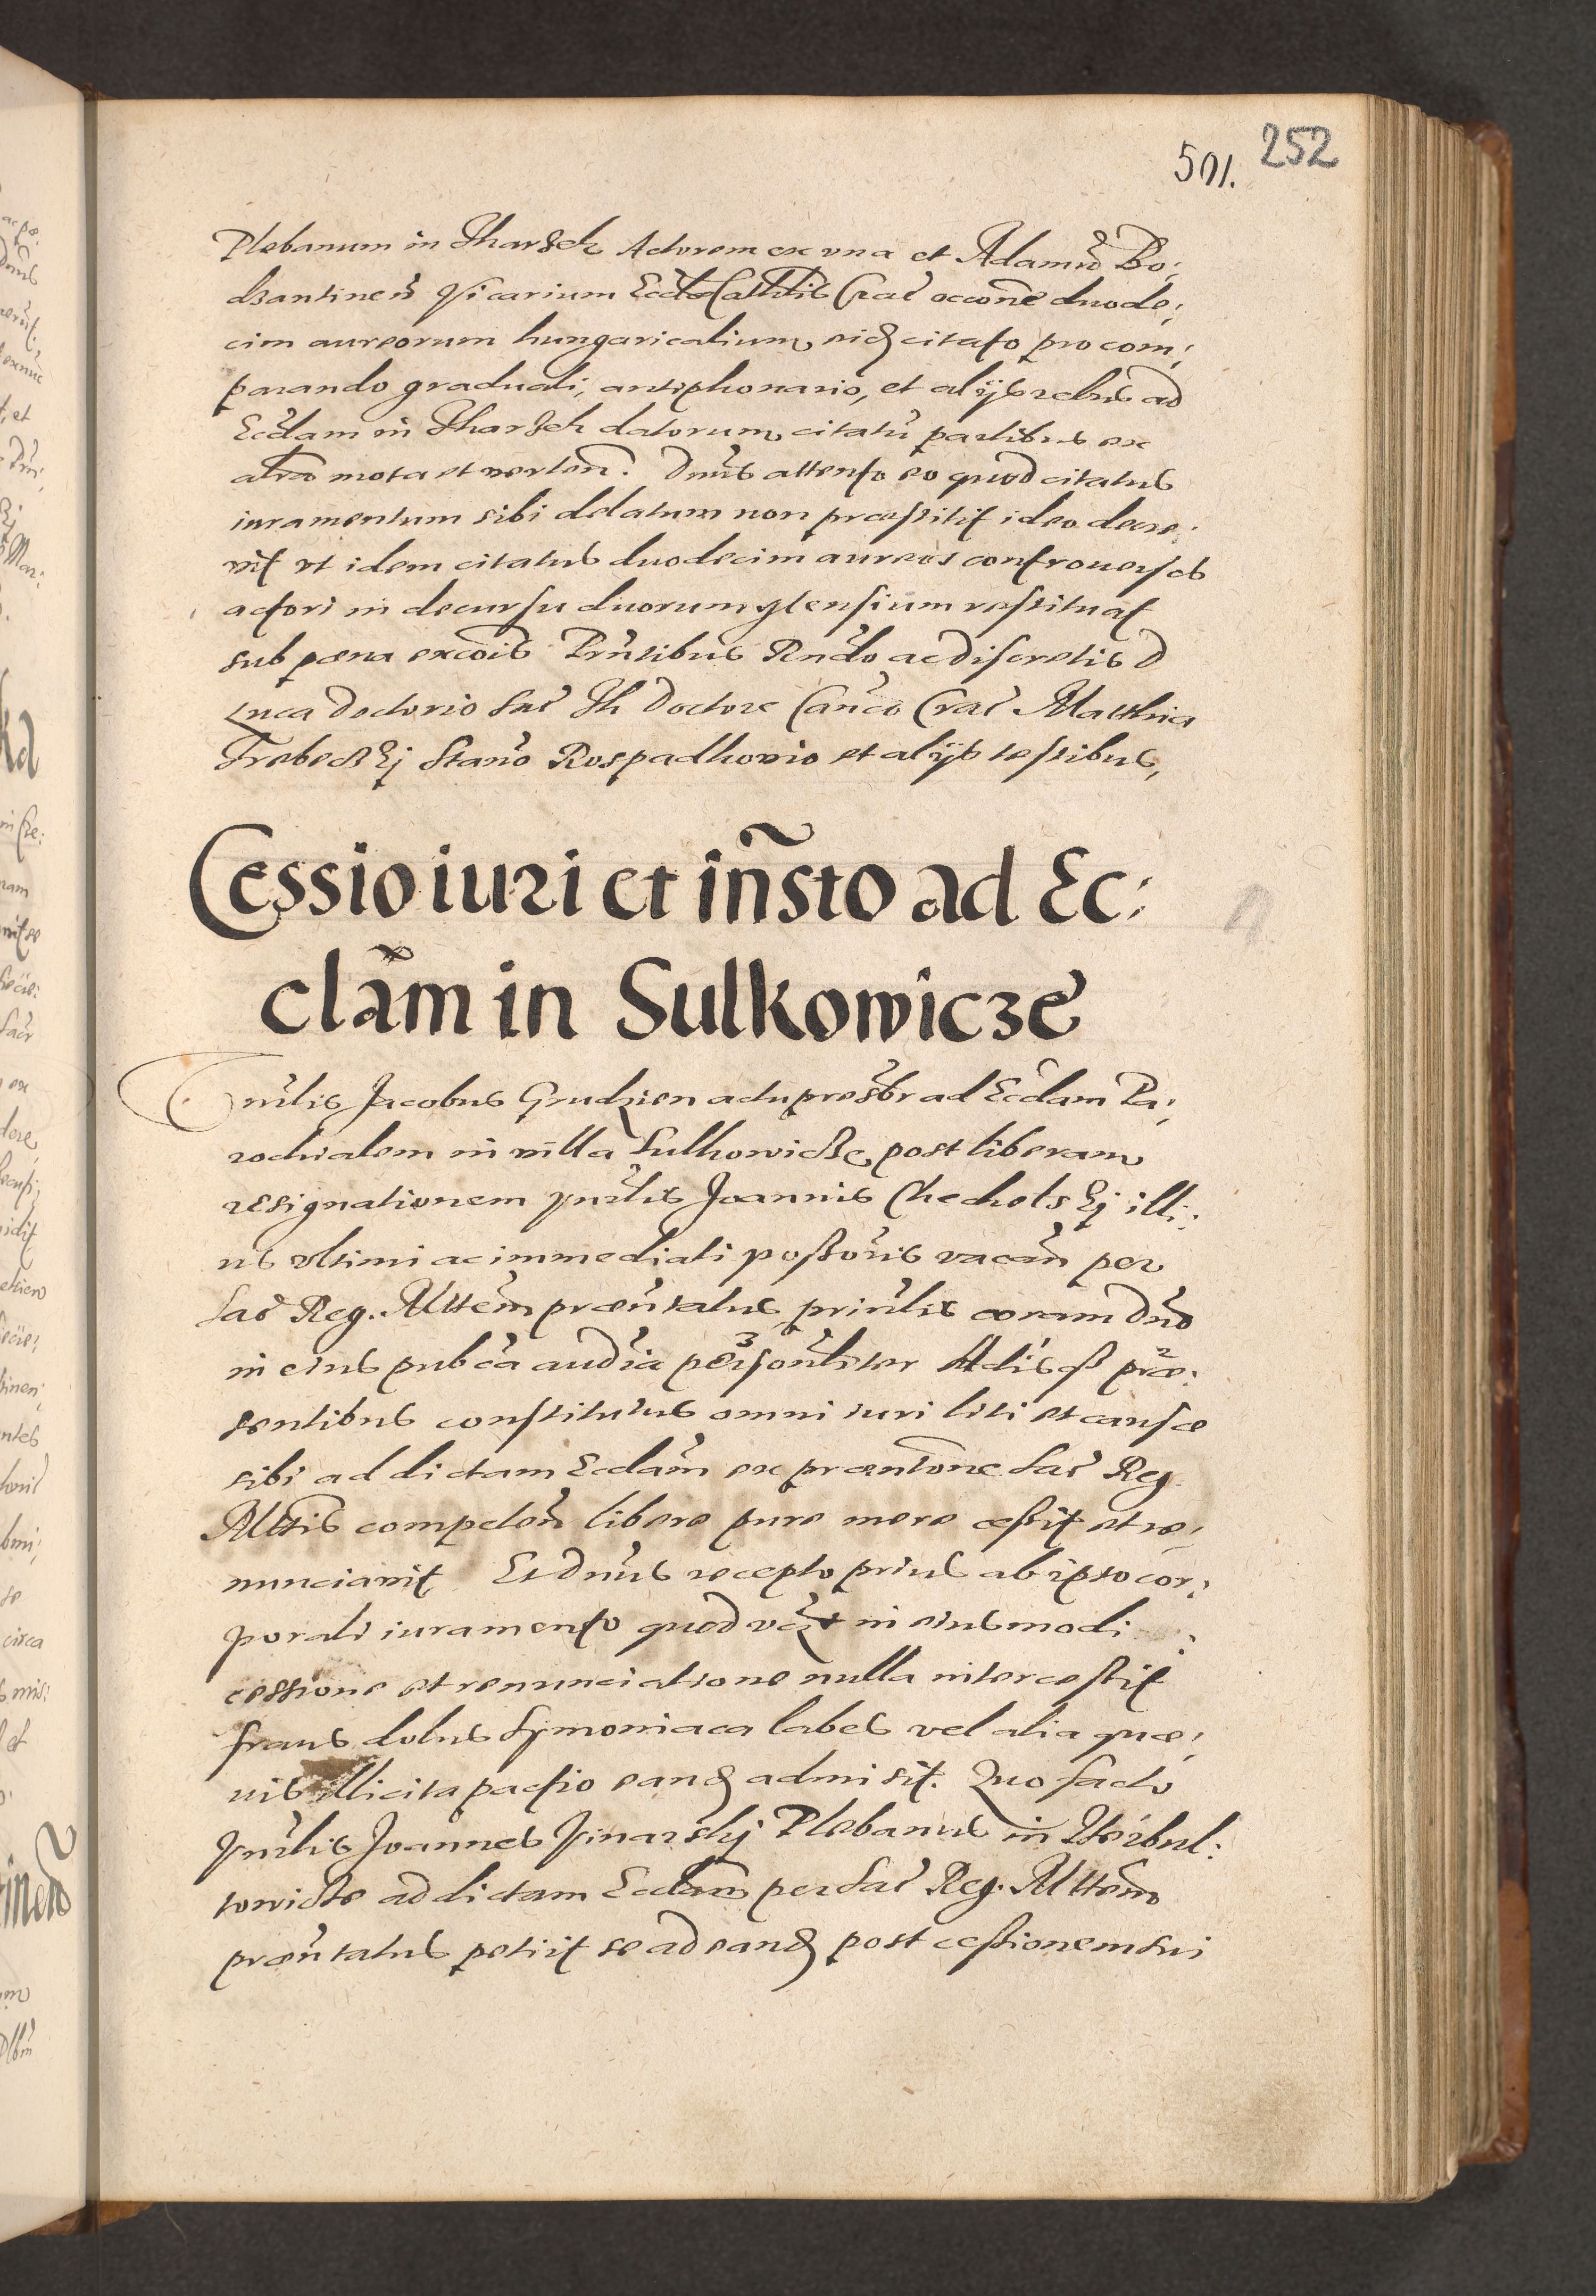 501. 252
Plebanum in Thargek Actorem ex vna et Adamū Bo:
dzantinen̄ Vicarium Eccl̄ae Cathl̄is Crac̄ occōne duode:
cim aureorum hungaricalium eid citato pro com:
parando graduali, antiphonario, et alijs rebus ad
Eccl̄am in Thargek datorum citatū partibus ex
altera mota et verten̄. Dn̄us attento eo quod citatus
iuramentum sibi delatum non præstitit ideo decre:
vit vt idem citatus duodecim aureos controuersos
actori in decursu duorum Mensium restituat
sub pœna excōis Pn̄tibus Rn̄do ac Discretis D
Luca Doctorio Sac̄ Th Doctore Can̄co Crac̄ Matthia
Trebeczkj Stan̄o Rospadkowio et alijs testibus,
Cessio iuri et in̄sto ad Ec:
clām in Sulkowicze
Vn̄lis Jacobus Grudzien actu presbr ad Eccl̄am Pa:
rochialem in villa Sulkowicze, post liberam
resignationem Vn̄lis Joannis Chechelskj illi:
us vltimi ac immediati possōris vacan̄ per
Sac̄ Reg. Mttēm præn̄tatus, priūlis coram Dn̄o
in eius pub̄ca aud̄ia persōnliter Actis præ:
sentibus constitutus omni iuri liti et causæ
sibi ad dictam Eccl̄am ex præn̄tōne Sac̄ Reg.
Mttis competen̄ libere pure mere cessit et re:
nunciavit Et Dn̄us recepto prius ab ipso cor:
porali iuramento quod in eiusmodi
cessione et renunciatione nulla intercessit
fraus dolus Symoniaca labes vel alia quæ:
uis illicita pactio eand admisit. Quo facto
Vn̄lis Joannes Vinarskj Plebanus in Werbul:
towicze ad dictam Eccl̄am per Sac̄ Reg. Mttēm
præn̄tatus petijt se ad eand post cessionem sui